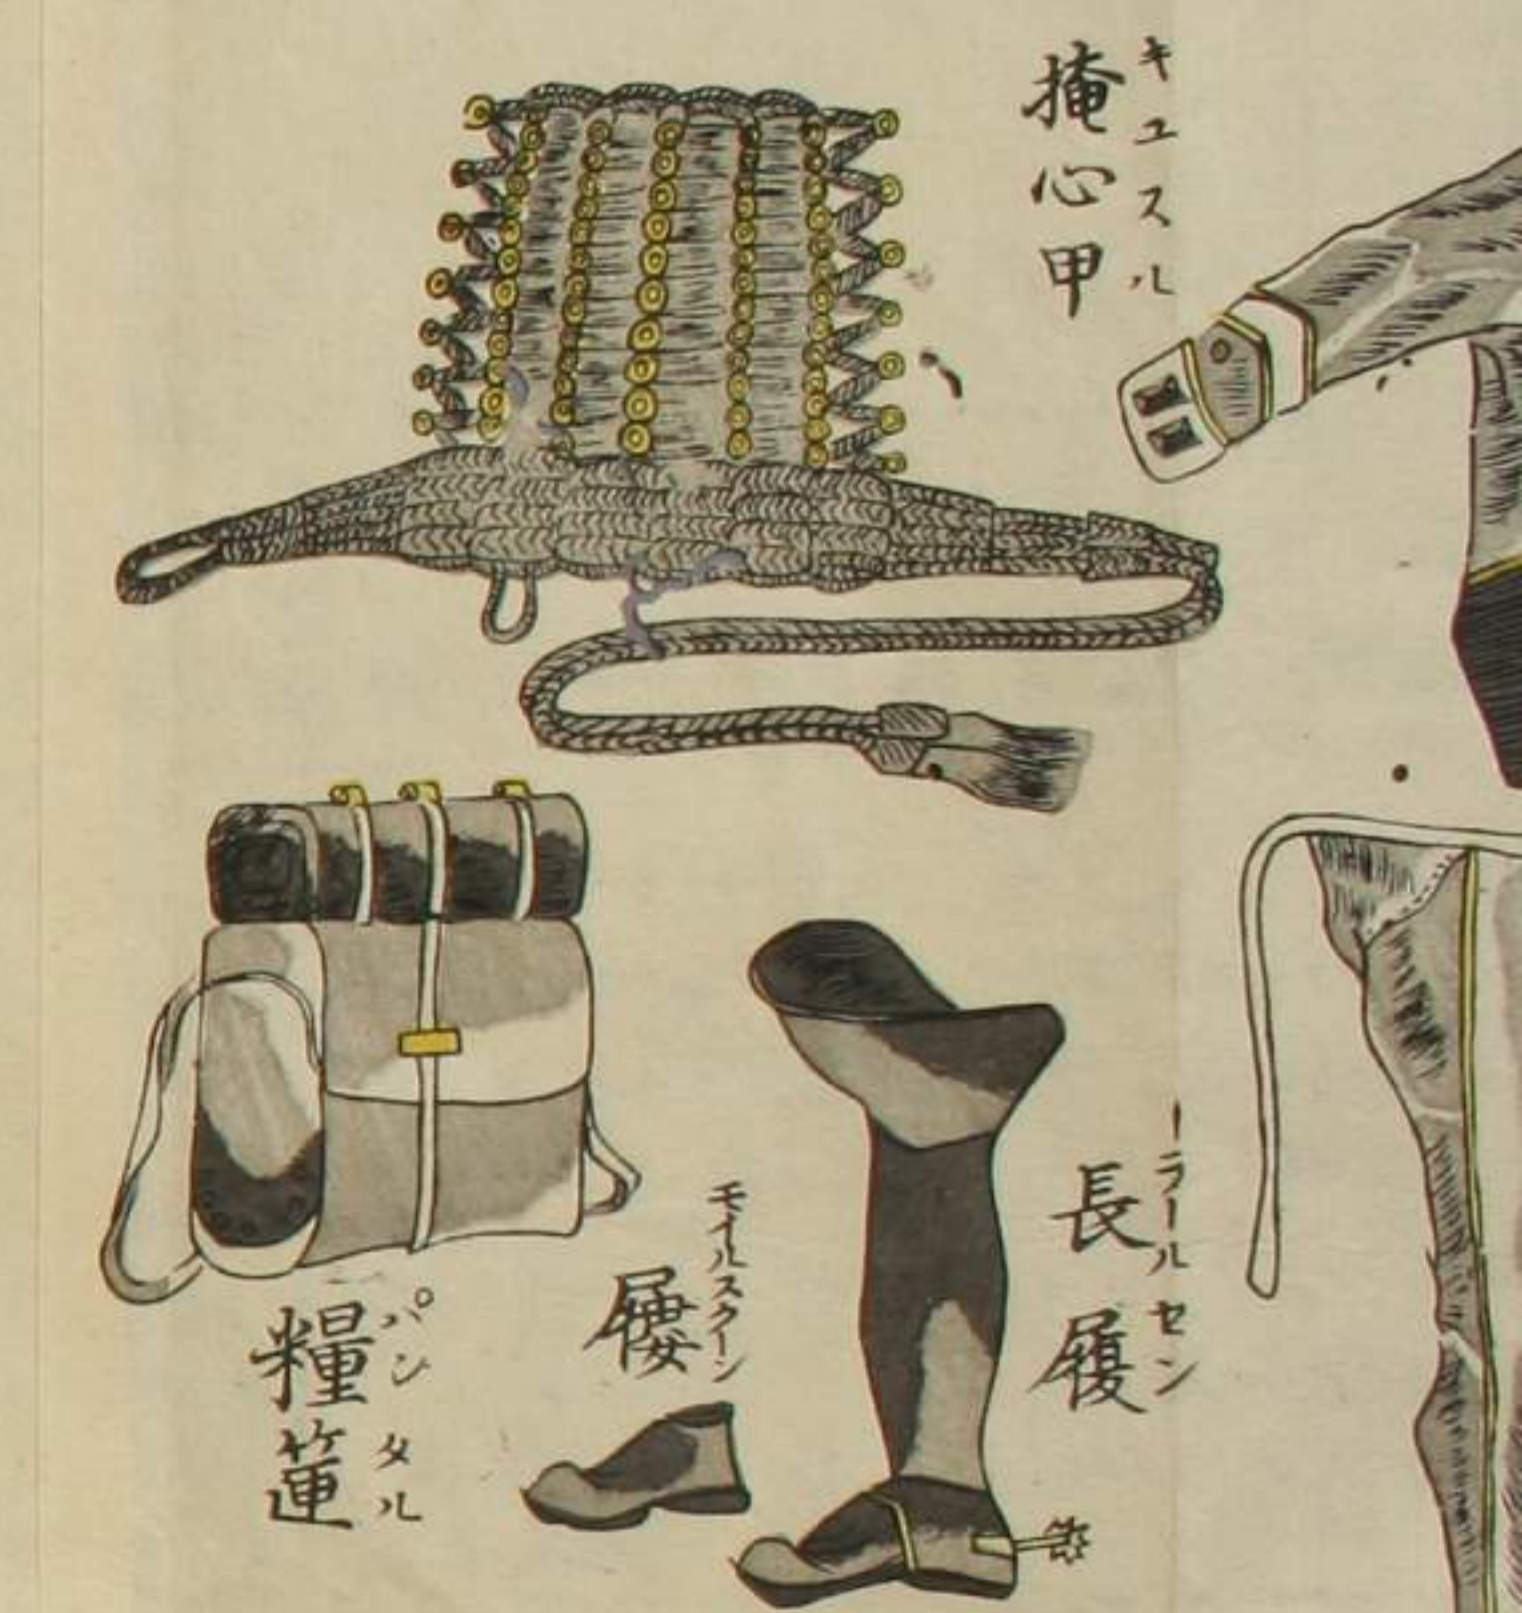 キユスル
掩心甲
ーラールセン
長履
モイルスクーン
パンタル
糧